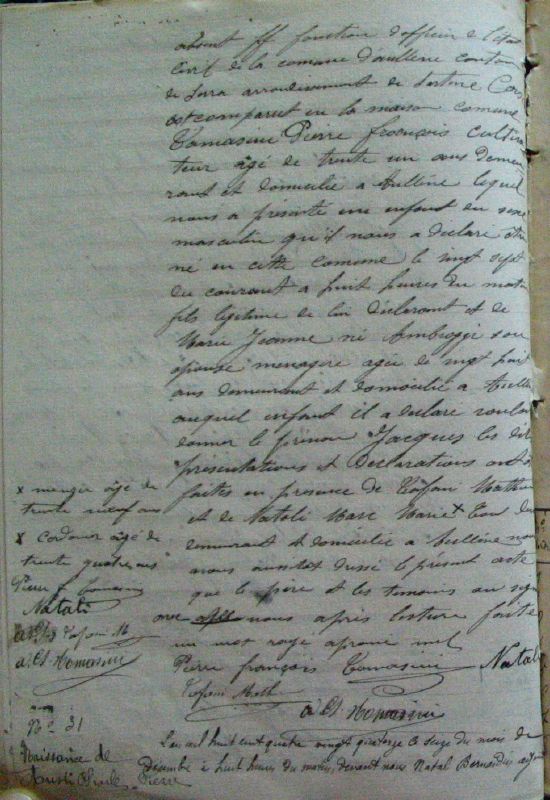 absent ff fonction d'officier de l'état
civil de la comune d'aullène canton
de Serra arrondissement de Sartène Corse
est comparut en la maison comune
Tomasini Pierre françois cultiva
teur âgé de trente un ans demeu
rant et domicilié a Aullène lequel
nous a présenté un enfant du sexe
masculin qu'il nous a déclaré être
né en cette comune le vingt sept
du courant a huit heures du matin
fils legitime de lui déclarant et de
Marie Jeanne né Ambroggi son
épouse menagere agée de vingt huit
ans demeurant et domicilié a Aullène
auquel enfant il a déclaré vouloir
donner le prénom Jacques les dites
présentations et déclarations ont été
faites en presence de Tafani Mathieu
et de Natali Marc Marie x tous deux
demurant et domicilié a Aullène
nous avons dressé le présent acte
que le père et les temoins on signé
avec nous après lecture faite
un mot rayé aprouvé nul
Pierre françois Tomasini Natali
Tafani Math
x âgé de
trente neuf ans
x cordonier âgé de
trente quatre ans
Pierre f Tomasini
Natali
Tafani M
Tomasini
Tomasini
N° 31
Naissance de
Pierre
L'an mil huit cent quatre vingt quatorze le seize du mois de
Décembre à huit heures du matin, devant nous Natal Bernardin adjoint